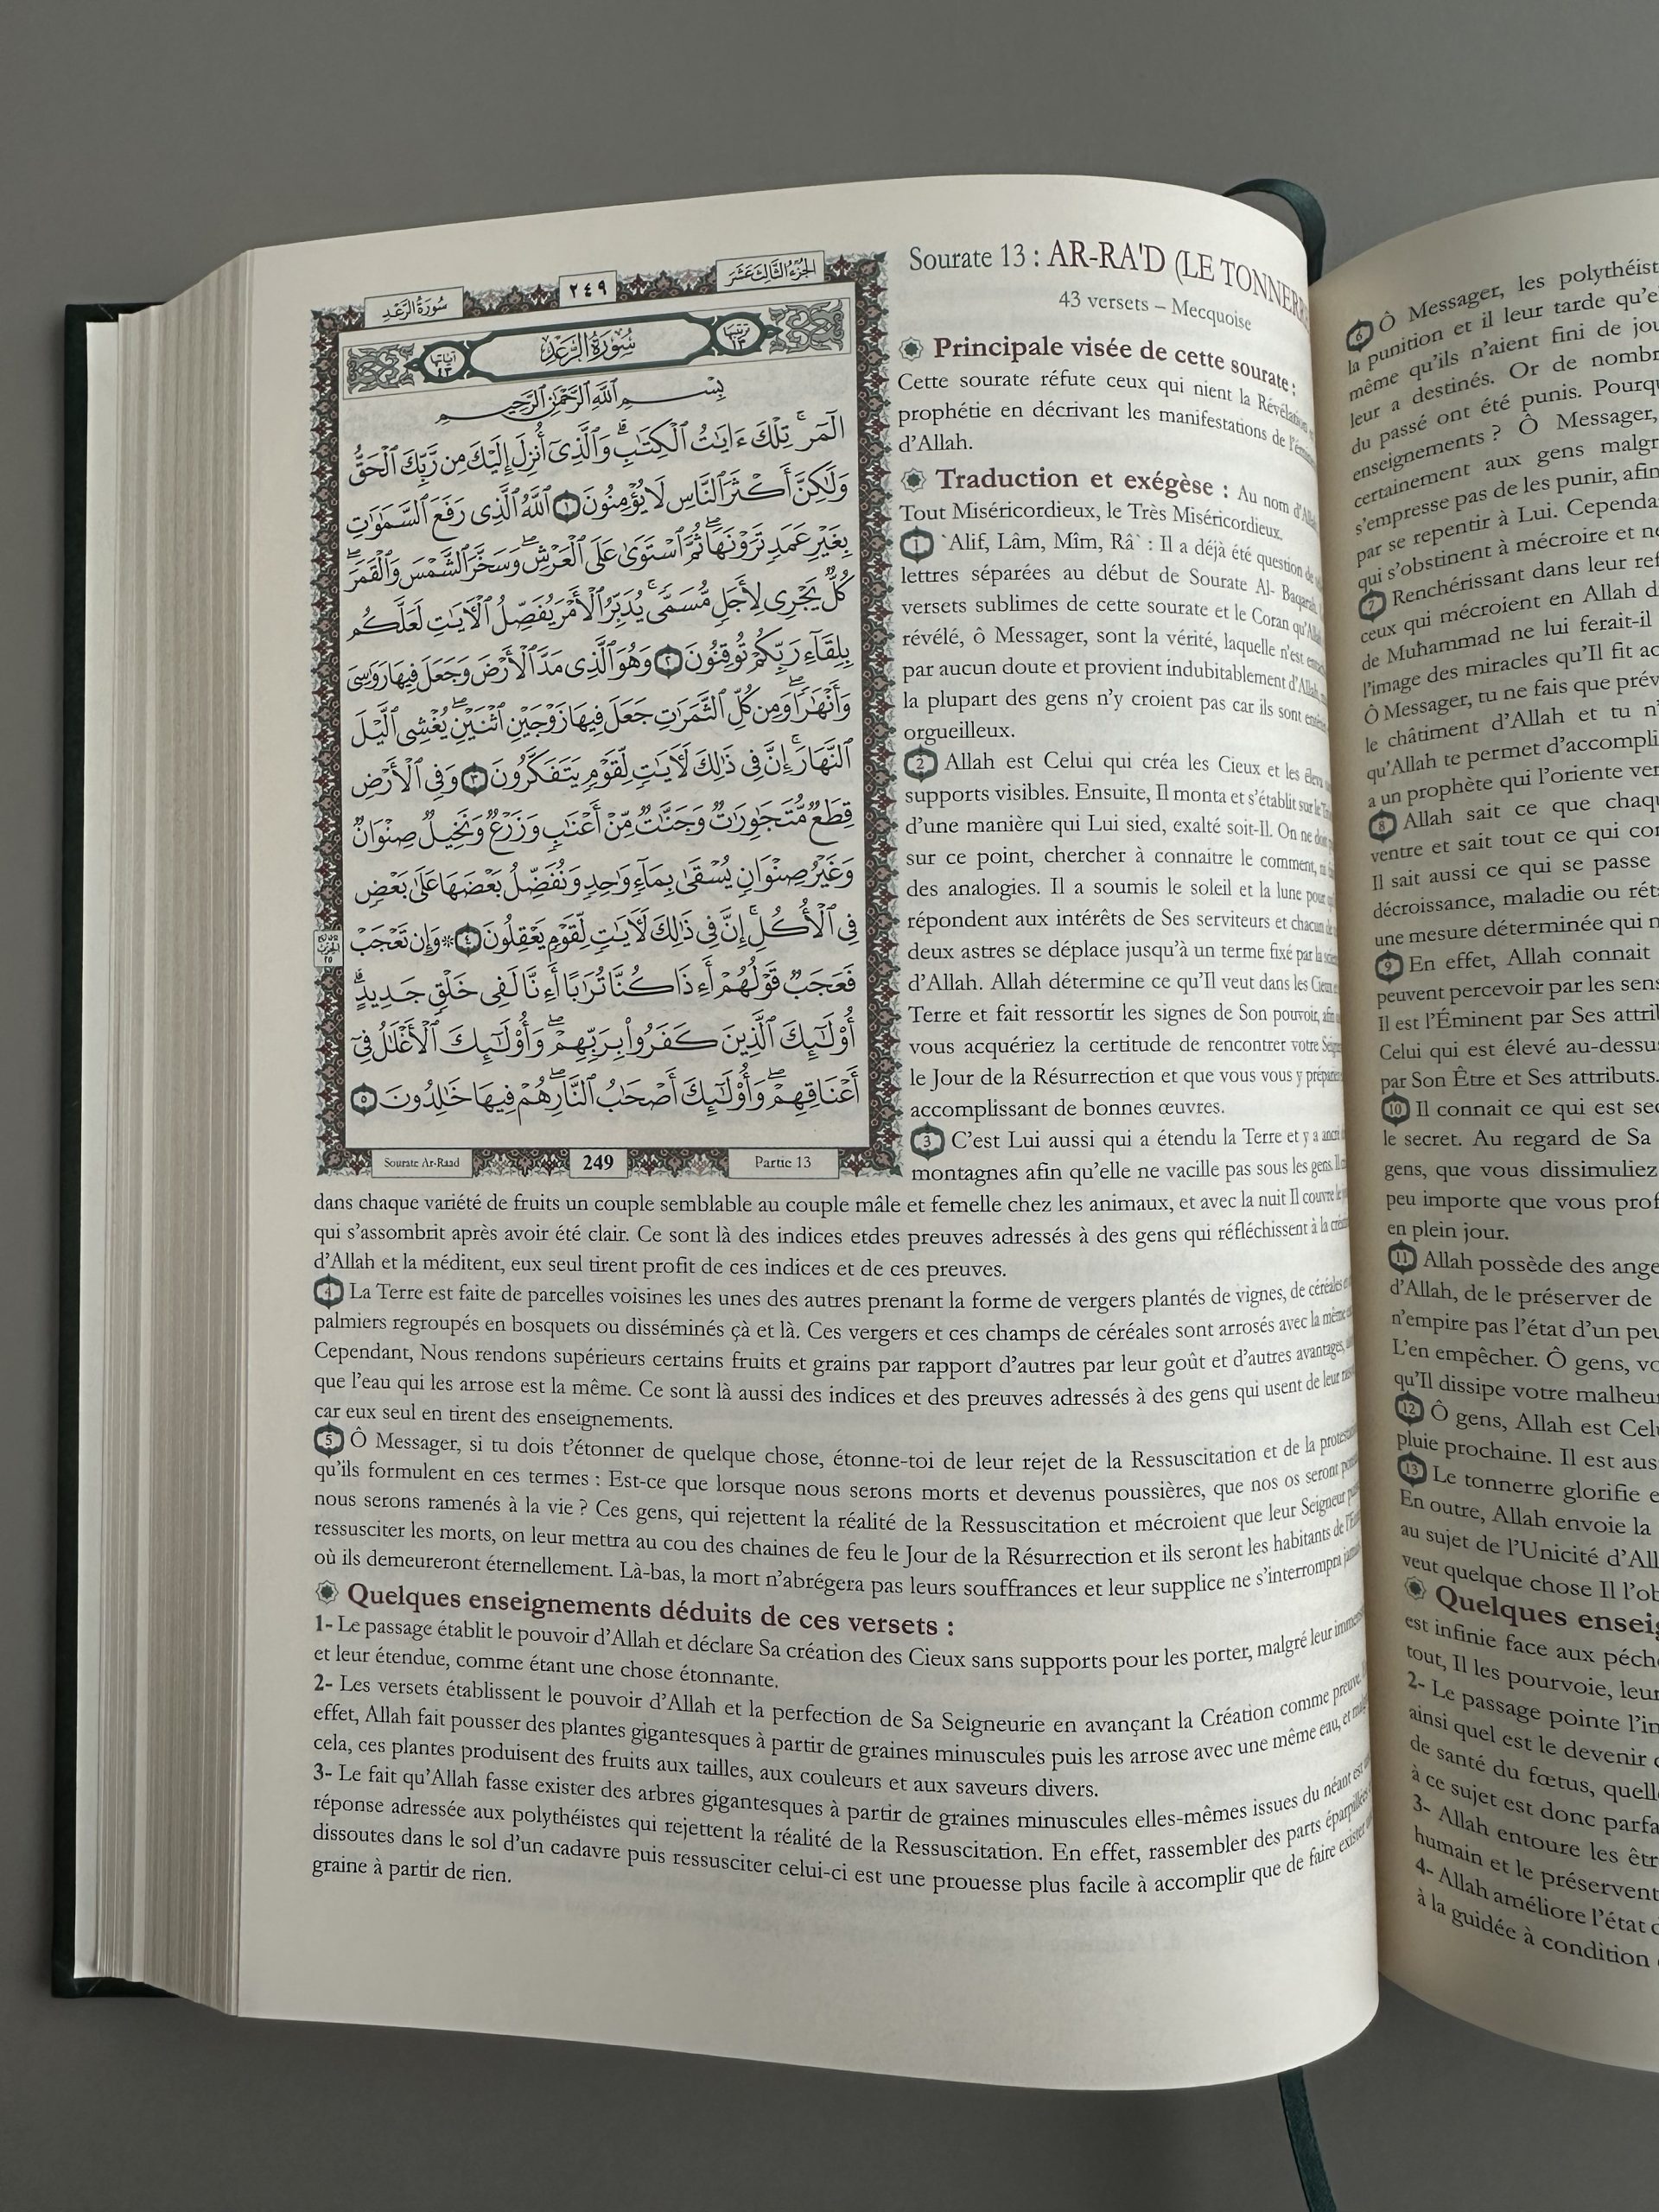 سُورَةُ الرَّعْدِ
٢٤٩
الجُزْءُ الثَّالِثَ عَشَرَ
ترتيبها ١٣
سُورَةُ الرَّعْدِ
آياتها ٤٣
بِسْمِ ٱللَّهِ ٱلرَّحْمَٰنِ ٱلرَّحِيمِ
الٓمٓرۚ تِلۡكَ ءَايَٰتُ ٱلۡكِتَٰبِۗ وَٱلَّذِيٓ أُنزِلَ إِلَيۡكَ مِن رَّبِّكَ ٱلۡحَقُّ
وَلَٰكِنَّ أَكۡثَرَ ٱلنَّاسِ لَا يُؤۡمِنُونَ ١ ٱللَّهُ ٱلَّذِي رَفَعَ ٱلسَّمَٰوَٰتِ
بِغَيۡرِ عَمَدٖ تَرَوۡنَهَاۖ ثُمَّ ٱسۡتَوَىٰ عَلَى ٱلۡعَرۡشِۖ وَسَخَّرَ ٱلشَّمۡسَ وَٱلۡقَمَرَۖ
كُلّٞ يَجۡرِي لِأَجَلٖ مُّسَمّٗىۚ يُدَبِّرُ ٱلۡأَمۡرَ يُفَصِّلُ ٱلۡأٓيَٰتِ لَعَلَّكُم
بِلِقَآءِ رَبِّكُمۡ تُوقِنُونَ ٢ وَهُوَ ٱلَّذِي مَدَّ ٱلۡأَرۡضَ وَجَعَلَ فِيهَا رَوَٰسِيَ
وَأَنۡهَٰرٗاۖ وَمِن كُلِّ ٱلثَّمَرَٰتِ جَعَلَ فِيهَا زَوۡجَيۡنِ ٱثۡنَيۡنِۖ يُغۡشِي ٱلَّيۡلَ
ٱلنَّهَارَۚ إِنَّ فِي ذَٰلِكَ لَأٓيَٰتٖ لِّقَوۡمٖ يَتَفَكَّرُونَ ٣ وَفِي ٱلۡأَرۡضِ
قِطَعٞ مُّتَجَٰوِرَٰتٞ وَجَنَّٰتٞ مِّنۡ أَعۡنَٰبٖ وَزَرۡعٞ وَنَخِيلٞ صِنۡوَانٞ
وَغَيۡرُ صِنۡوَانٖ يُسۡقَىٰ بِمَآءٖ وَٰحِدٖ وَنُفَضِّلُ بَعۡضَهَا عَلَىٰ بَعۡضٖ
فِي ٱلۡأُكُلِۚ إِنَّ فِي ذَٰلِكَ لَأٓيَٰتٖ لِّقَوۡمٖ يَعۡقِلُونَ ٤ ۞وَإِن تَعۡجَبۡ
فَعَجَبٞ قَوۡلُهُمۡ أَءِذَا كُنَّا تُرَٰبًا أَءِنَّا لَفِي خَلۡقٖ جَدِيدٍۗ
أُوْلَٰٓئِكَ ٱلَّذِينَ كَفَرُواْ بِرَبِّهِمۡۖ وَأُوْلَٰٓئِكَ ٱلۡأَغۡلَٰلُ فِيٓ
أَعۡنَاقِهِمۡۖ وَأُوْلَٰٓئِكَ أَصۡحَٰبُ ٱلنَّارِۖ هُمۡ فِيهَا خَٰلِدُونَ ٥
Sourate Ar-Raad
249
Partie 13
Sourate 13 : AR-RA'D (LE TONNERRE
43 versets – Mecquoise
Principale visée de cette sourate :
Cette sourate réfute ceux qui nient la Révélation
prophétie en décrivant les manifestations de
d'Allah.
Traduction et exégèse : Au nom
Tout Miséricordieux, le Très Miséricordieux.
1 `Alif, Lâm, Mîm, Râ` : Il a déjà été question de
lettres séparées au début de Sourate Al- Baqarah.
versets sublimes de cette sourate et le Coran
révélé, ô Messager, sont la vérité, laquelle n'est
par aucun doute et provient indubitablement d'Allah,
la plupart des gens n'y croient pas car ils sont
orgueilleux.
2 Allah est Celui qui créa les Cieux et les
supports visibles. Ensuite, Il monta et s'établit sur le
d'une manière qui Lui sied, exalté soit-Il. On ne
sur ce point, chercher à connaitre le comment,
des analogies. Il a soumis le soleil et la lune pour
répondent aux intérêts de Ses serviteurs et chacun
deux astres se déplace jusqu'à un terme fixé par la
d'Allah. Allah détermine ce qu'Il veut dans les Cieux
Terre et fait ressortir les signes de Son pouvoir,
vous acquériez la certitude de rencontrer votre
le Jour de la Résurrection et que vous vous y
accomplissant de bonnes œuvres.
3 C'est Lui aussi qui a étendu la Terre et y a
montagnes afin qu'elle ne vacille pas sous les gens.
dans chaque variété de fruits un couple semblable au couple mâle et femelle chez les animaux, et avec la nuit Il couvre
qui s'assombrit après avoir été clair. Ce sont là des indices etdes preuves adressés à des gens qui réfléchissent à la
d'Allah et la méditent, eux seul tirent profit de ces indices et de ces preuves.
4 La Terre est faite de parcelles voisines les unes des autres prenant la forme de vergers plantés de vignes, de céréales
palmiers regroupés en bosquets ou disséminés çà et là. Ces vergers et ces champs de céréales sont arrosés avec la même
Cependant, Nous rendons supérieurs certains fruits et grains par rapport d'autres par leur goût et d'autres avantages,
que l'eau qui les arrose est la même. Ce sont là aussi des indices et des preuves adressés à des gens qui usent de leur
car eux seul en tirent des enseignements.
5 Ô Messager, si tu dois t'étonner de quelque chose, étonne-toi de leur rejet de la Ressuscitation et de la
qu'ils formulent en ces termes : Est-ce que lorsque nous serons morts et devenus poussières, que nos os seront
nous serons ramenés à la vie ? Ces gens, qui rejettent la réalité de la Ressuscitation et mécroient que leur Seigneur
ressusciter les morts, on leur mettra au cou des chaines de feu le Jour de la Résurrection et ils seront les habitants de
où ils demeureront éternellement. Là-bas, la mort n'abrégera pas leurs souffrances et leur supplice ne s'interrompra
Quelques enseignements déduits de ces versets :
1- Le passage établit le pouvoir d'Allah et déclare Sa création des Cieux sans supports pour les porter, malgré leur
et leur étendue, comme étant une chose étonnante.
2- Les versets établissent le pouvoir d'Allah et la perfection de Sa Seigneurie en avançant la Création comme preuve.
effet, Allah fait pousser des plantes gigantesques à partir de graines minuscules puis les arrose avec une même eau, et
cela, ces plantes produisent des fruits aux tailles, aux couleurs et aux saveurs divers.
3- Le fait qu'Allah fasse exister des arbres gigantesques à partir de graines minuscules elles-mêmes issues du néant est
réponse adressée aux polythéistes qui rejettent la réalité de la Ressuscitation. En effet, rassembler des parts éparpillées
dissoutes dans le sol d'un cadavre puis ressusciter celui-ci est une prouesse plus facile à accomplir que de faire exister
graine à partir de rien.
6 Ô Messager, les
la punition et il leur tarde
même qu'ils n'aient fini de
leur a destinés. Or de
du passé ont été punis.
enseignements ? Ô Messager,
certainement aux gens
s'empresse pas de les punir, afin
par se repentir à Lui.
qui s'obstinent à mécroire et
7 Renchérissant dans leur
ceux qui mécroient en Allah
de Muhammad ne lui ferait-il
l'image des miracles qu'Il fit
Ô Messager, tu ne fais que
le châtiment d'Allah et tu
qu'Allah te permet
a un prophète qui l'oriente
8 Allah sait ce que
ventre et sait tout ce qui
Il sait aussi ce qui se passe
décroissance, maladie ou
une mesure déterminée qui
9 En effet, Allah connait
peuvent percevoir par les
Il est l'Éminent par Ses
Celui qui est élevé
par Son Être et Ses attributs.
10 Il connait ce qui est
le secret. Au regard de Sa
gens, que vous dissimuliez
peu importe que vous
en plein jour.
11 Allah possède des
d'Allah, de le préserver de
n'empire pas l'état d'un
L'en empêcher. Ô gens,
qu'Il dissipe votre
12 Ô gens, Allah est
pluie prochaine. Il est
13 Le tonnerre glorifie
En outre, Allah envoie la
au sujet de l'Unicité
veut quelque chose Il
Quelques
est infinie face aux
tout, Il les pourvoie, leur
2- Le passage pointe
ainsi quel est le devenir
de santé du fœtus,
à ce sujet est donc
3- Allah entoure les
humain et le préservent
4- Allah améliore l'état
à la guidée à condition